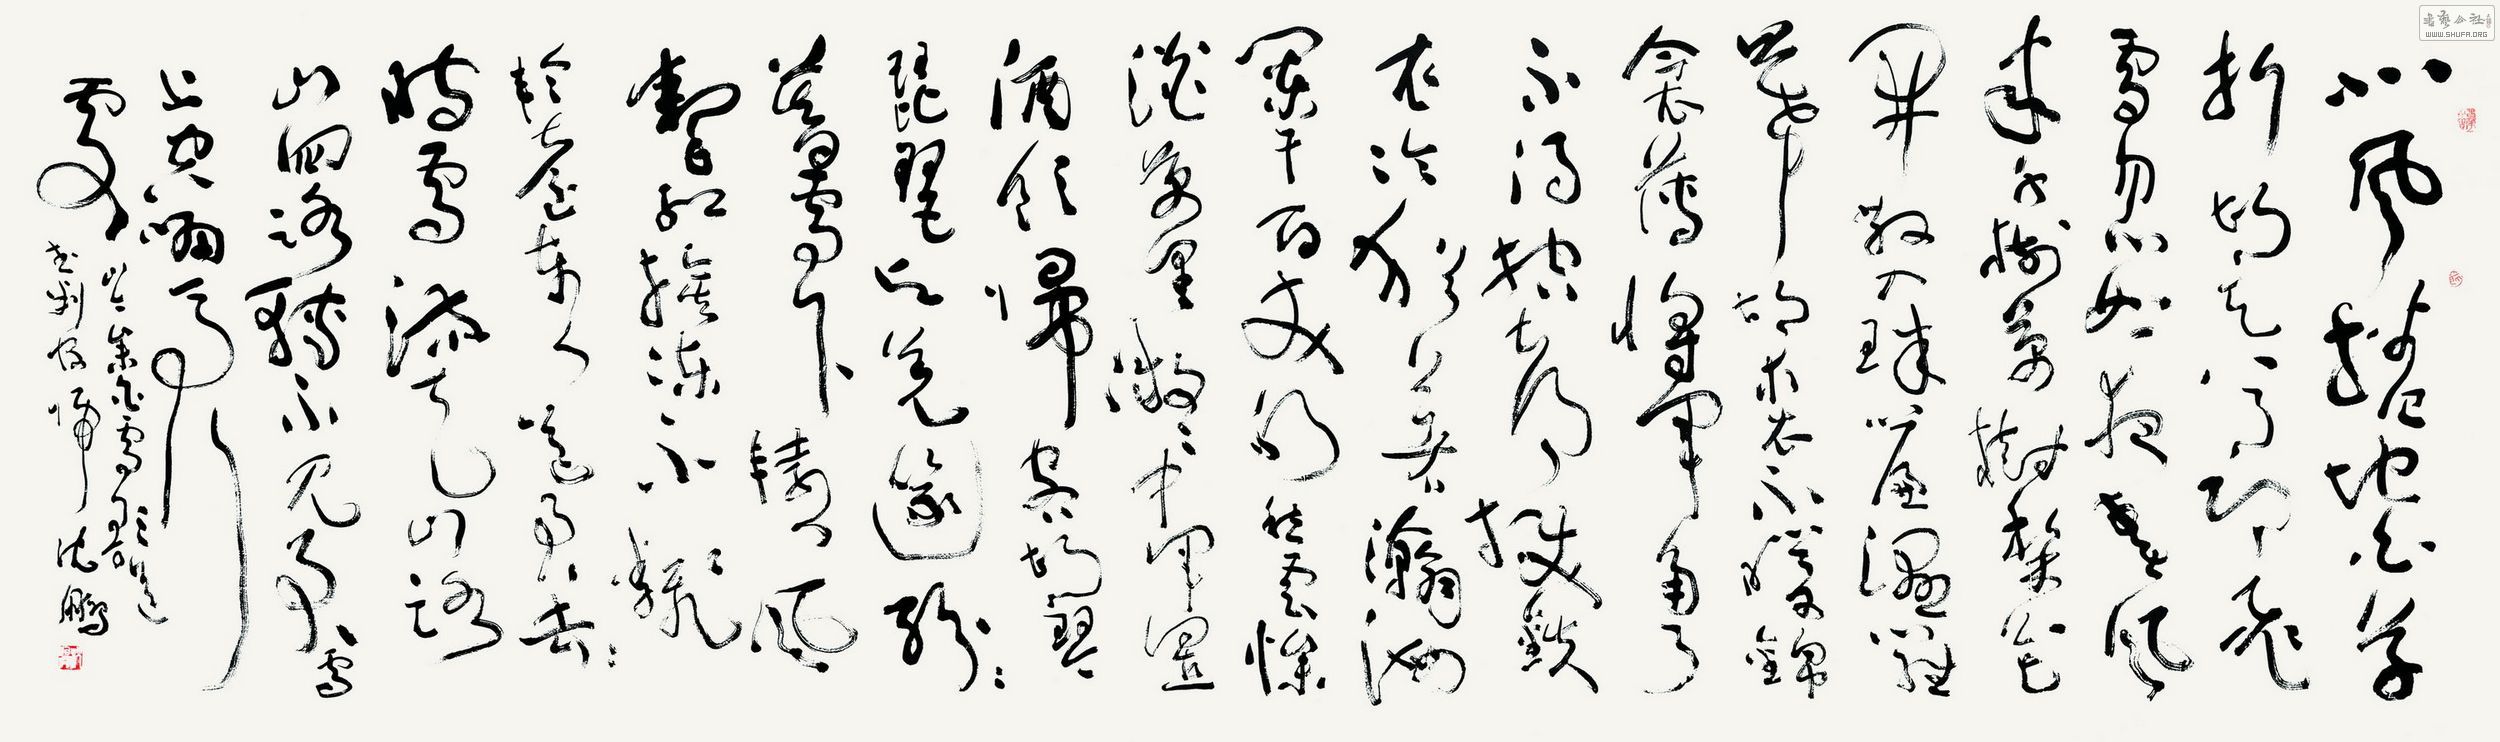 北風捲地白草
折胡天八月即飛
雪忽如一夜春風
來千樹萬樹梨花
開散入珠簾濕羅
幕狐裘不暖錦
衾薄將軍角弓
不得控都護鐵
衣冷猶著瀚海
闌干百丈冰愁雲慘
淡萬里凝中軍置
酒飲歸客胡琴
琵琶與羌篴紛〻
暮雪下轅門風
掣紅旗凍不翻
輪臺東門送君去〻
時雪滿天山路
山回路轉不見君雪
上空留馬行
處
岑參白雪歌送
武判官歸 沈鵬
WWW.SHUFA.ORG